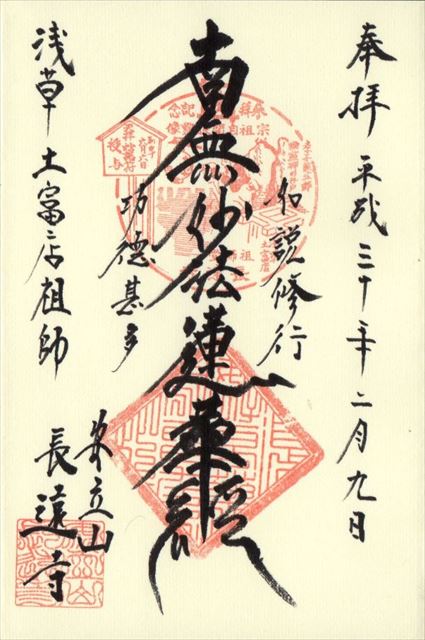 奉拝 平成三十年二月九日
如説修行
南無妙法蓮華経
功徳甚多
浅草 土富店祖師
安立山
長遠寺